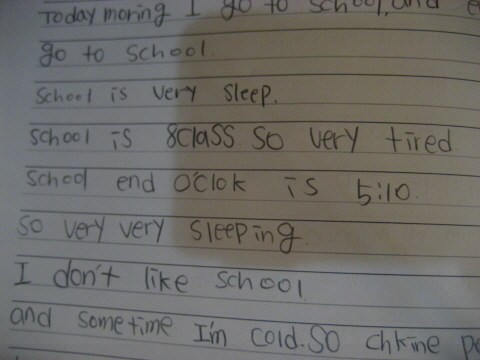 Today moring I go to school, and
go to school.
School is very sleep.
School is 8class so very tired
School end O'clok is 5:10.
So very very sleeping.
I don't like school
and sometime I'm cold. So